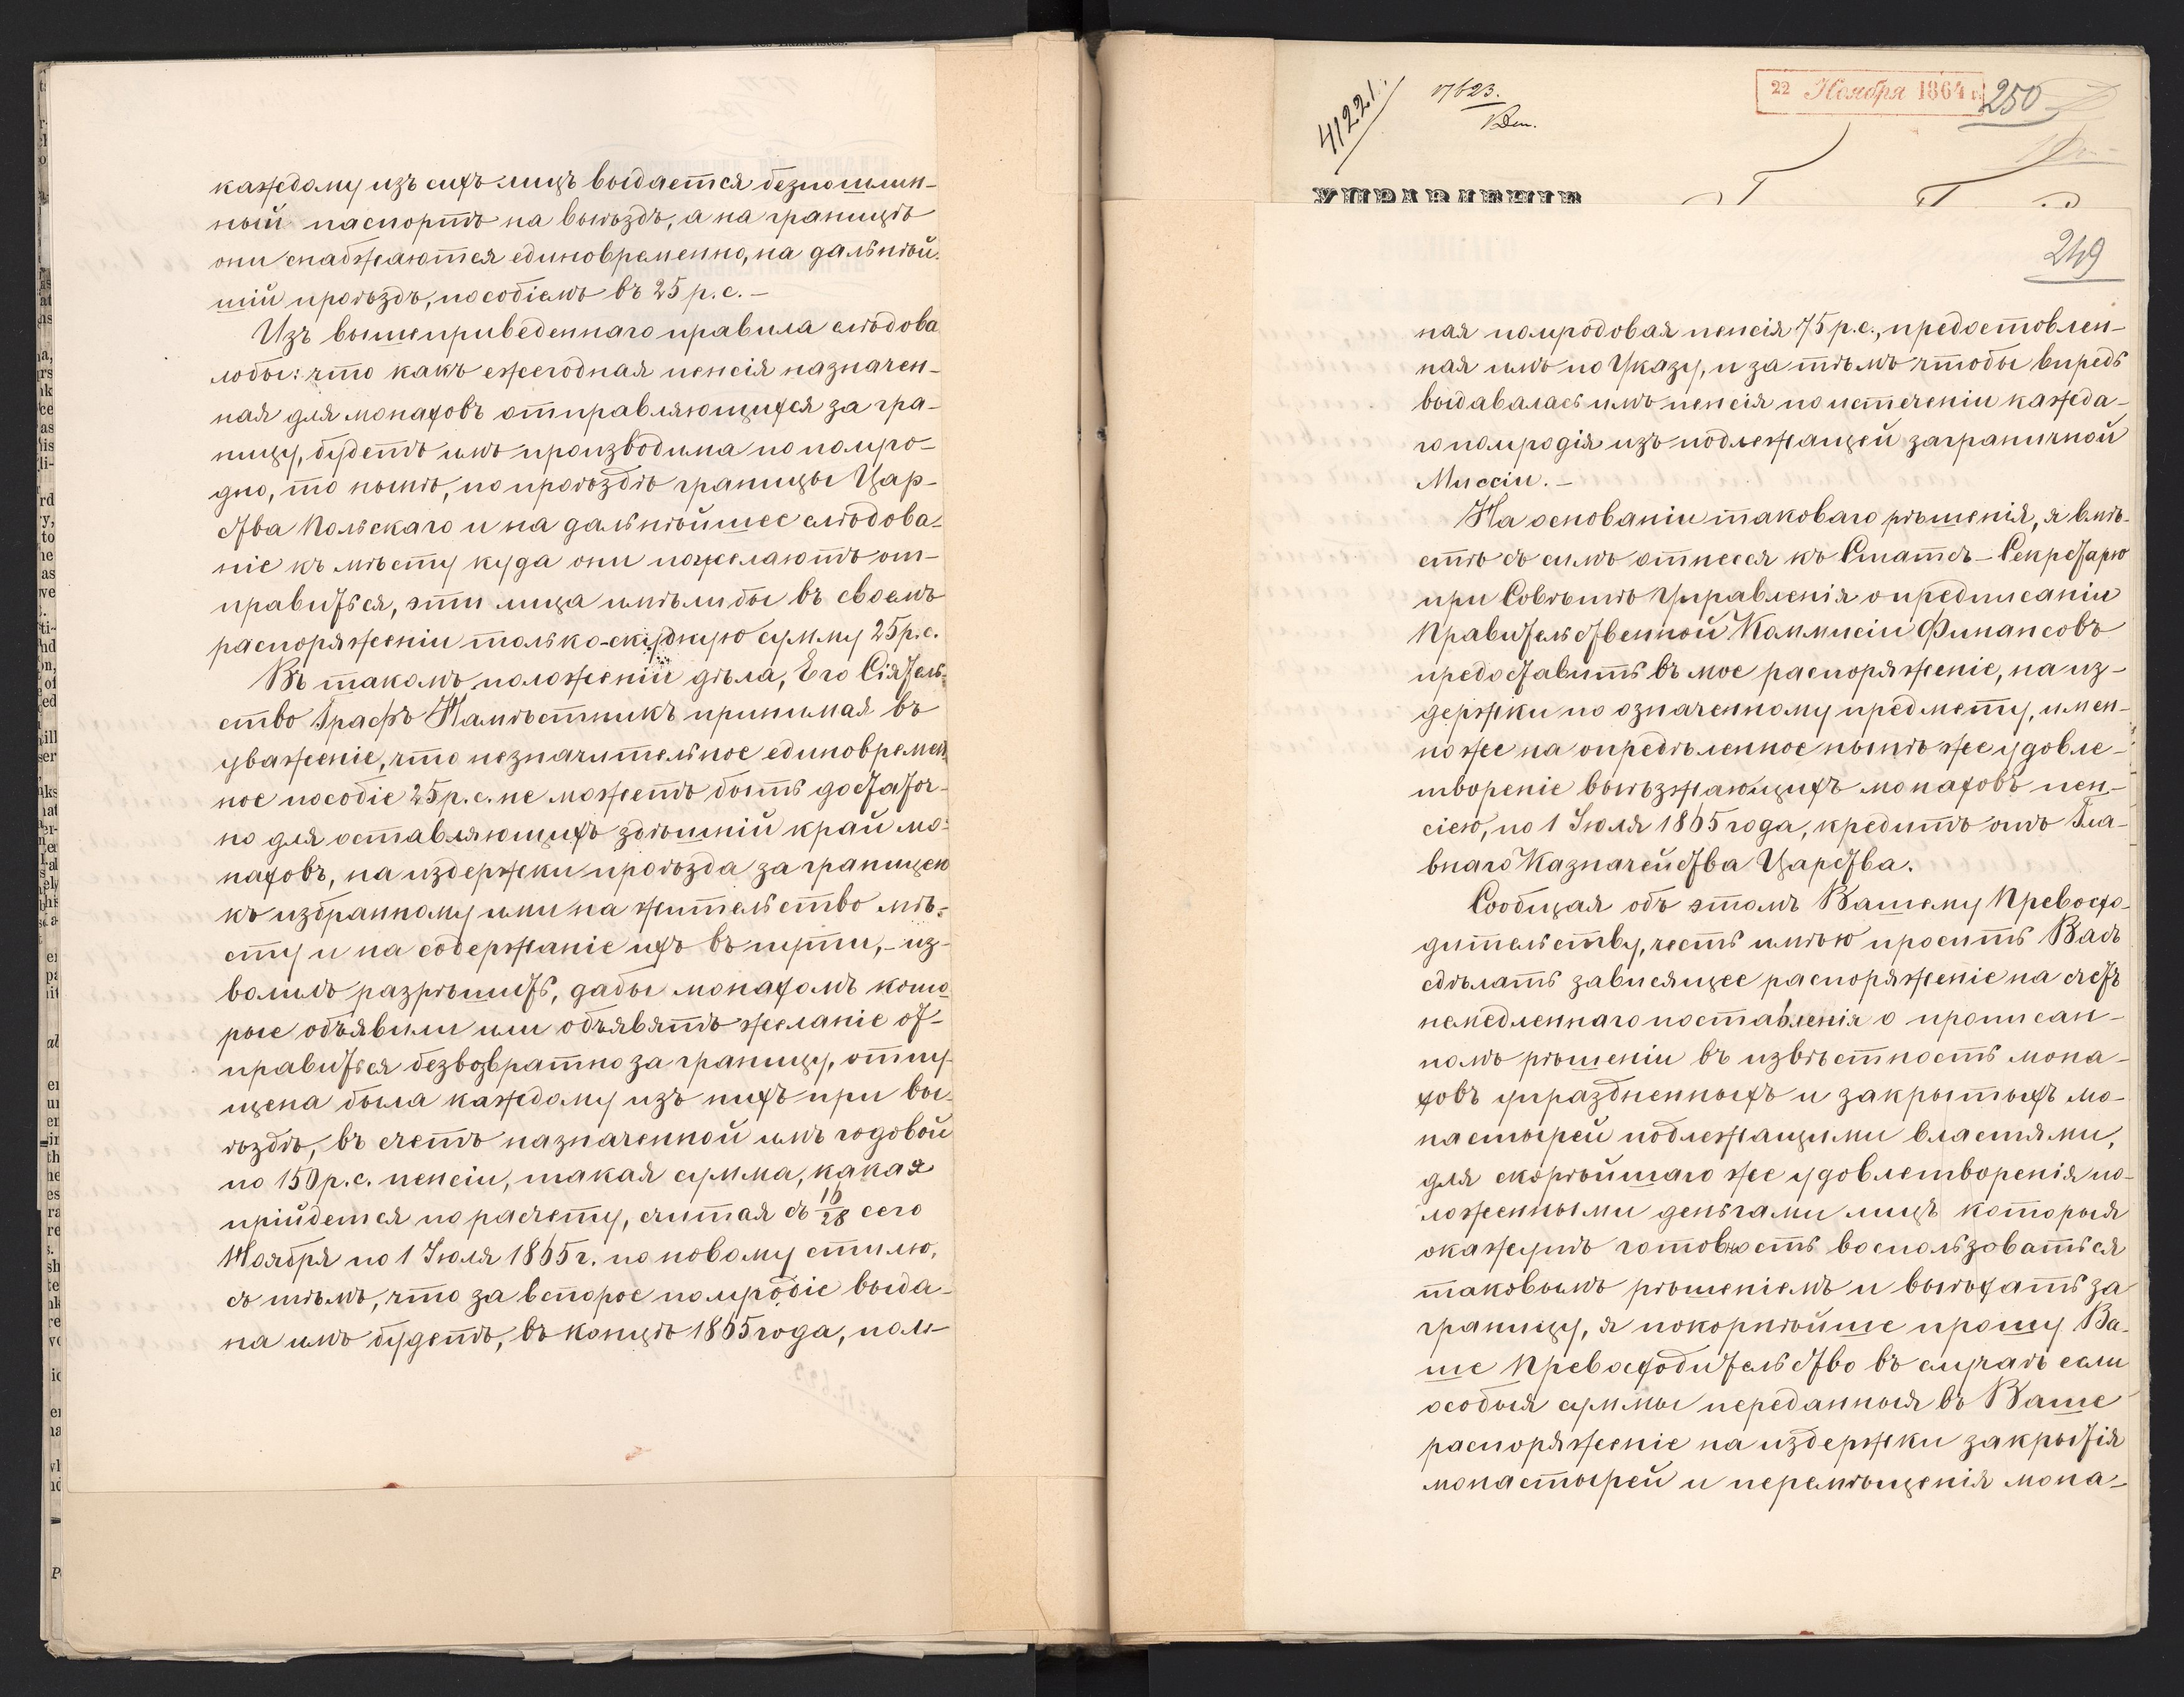 каждому изъ сихъ лицъ выдается безпошлин-
ный паспортъ на выѣздъ, а на границѣ
они снабжаются единовременно, на дальнѣй-
шій проѣздъ, пособіемъ въ 25 р. с. –
Изъ вышеприведеннаго правила слѣдова
лобы: что какъ ежегодная пенсія назначен-
ная для монаховъ отправляющихся за гра-
ницу, будетъ имъ производима по полуго-
дно, то нынѣ, по проѣздѣ границы Цар-
ства Польскаго и на дальнѣйшее слѣдова-
ніе къ мѣсту куда они пожелаютъ от-
правиться, эти лица имѣли бы въ своемъ
распоряженіи только скудную сумму 25 р. с.
Въ такомъ положеніи дѣла, Его Сіятель-
ство Графъ Намѣстникъ принимая въ
уваженіе, что незначительное единовремен-
ное пособіе 25 р. с. не можетъ быть достаточ-
но для оставляющихъ здѣшній край мо-
наховъ, на издержки проѣзда за границею
къ избранному ими на жительство мѣ-
сту и на содержаніе ихъ въ пути, – из-
волилъ разрѣшить, дабы монахомъ кото
рые объявили или объявятъ желаніе от-
правиться безвозвратно за границу, отпу-
щена была каждому изъ нихъ при вы-
ѣздѣ, въ счетъ назначенной имъ годовой
по 150 р. с. пенсіи, такая сумма, какая
прійдется по расчету, считая съ 16/28 сего
Ноября по 1 Іюля 1865 г. по новому стилю,
съ тѣмъ, что за второе полугодіе выда-
на имъ будетъ, въ концѣ 1865 года, пол-
41221
17623.
22 Ноября 1864 г.
250
УПРАВЛЕНІЕ
249
ная полугодовая пенсія 75 р. с., предоставлен-
ная имъ по Указу, и за тѣмъ чтобы впредь
выдавалась имъ пенсія по истеченіи каждa-
го полугодія изъ подлежащей заграничной
Миссіи. –
На основаніи таковаго рѣшенія, я вмѣ-
стѣ съ симъ отнесся къ Статсъ-Секретарю
при Совѣтѣ Управленія о предписаніи
Правительственной Коммисіи Финансовъ
предоставить въ мое распоряженіе, на из-
держки по означенному предмету, имен-
но же на опредѣленное нынѣ же удовле-
твореніе выѣзжающихъ монаховъ пен-
сіею, по 1 Іюля 1865 года, кредитъ отъ Гла-
внаго Казначейства Царства.
Сообщая объ этомъ Вашему Превосхо-
дительству, честь имѣю просить Васъ
сдѣлать зависящее распоряженіе на счетъ
немедленнаго поставленія о прописан-
номъ рѣшеніи въ извѣстность мона-
ховъ упраздненныхъ и закрытыхъ мо-
настырей подлежащими властями,
для скорѣйшаго же удовлетворенія по-
ложенными деньгами лицъ которыя
окажутъ готовность воспользоваться
таковымъ рѣшеніемъ и выѣхать за
границу, я покорнѣйше прошу Ва-
ше Превосходительство въ случаѣ если
особыя суммы переданныя въ Ваше
распоряженіе на издержки закрытія
монастырей и перемѣщенія мона-